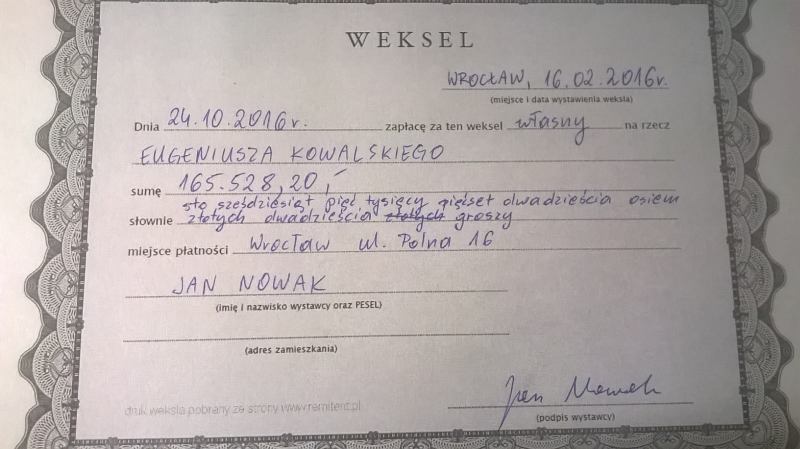 WEKSEL
WROCŁAW, 16.02.2016r.
(miejsce i data wystawienia weksla)
Dnia 24.10.2016r. zapłacę za ten weksel własny na rzecz
EUGENIUSZA KOWALSKIEGO
sumę 165.528,20,-
sto sześćdziesiąt pięć tysięcy pięćset dwadzieścia osiem
słownie złotych dwadzieścia złotych groszy
miejsce płatności Wrocław ul. Polna 16
JAN NOWAK
(imię i nazwisko wystawcy oraz PESEL)
(adres zamieszkania)
Jan Nowak
druk weksla pobrany ze strony www.remitent.pl
(podpis wystawcy)